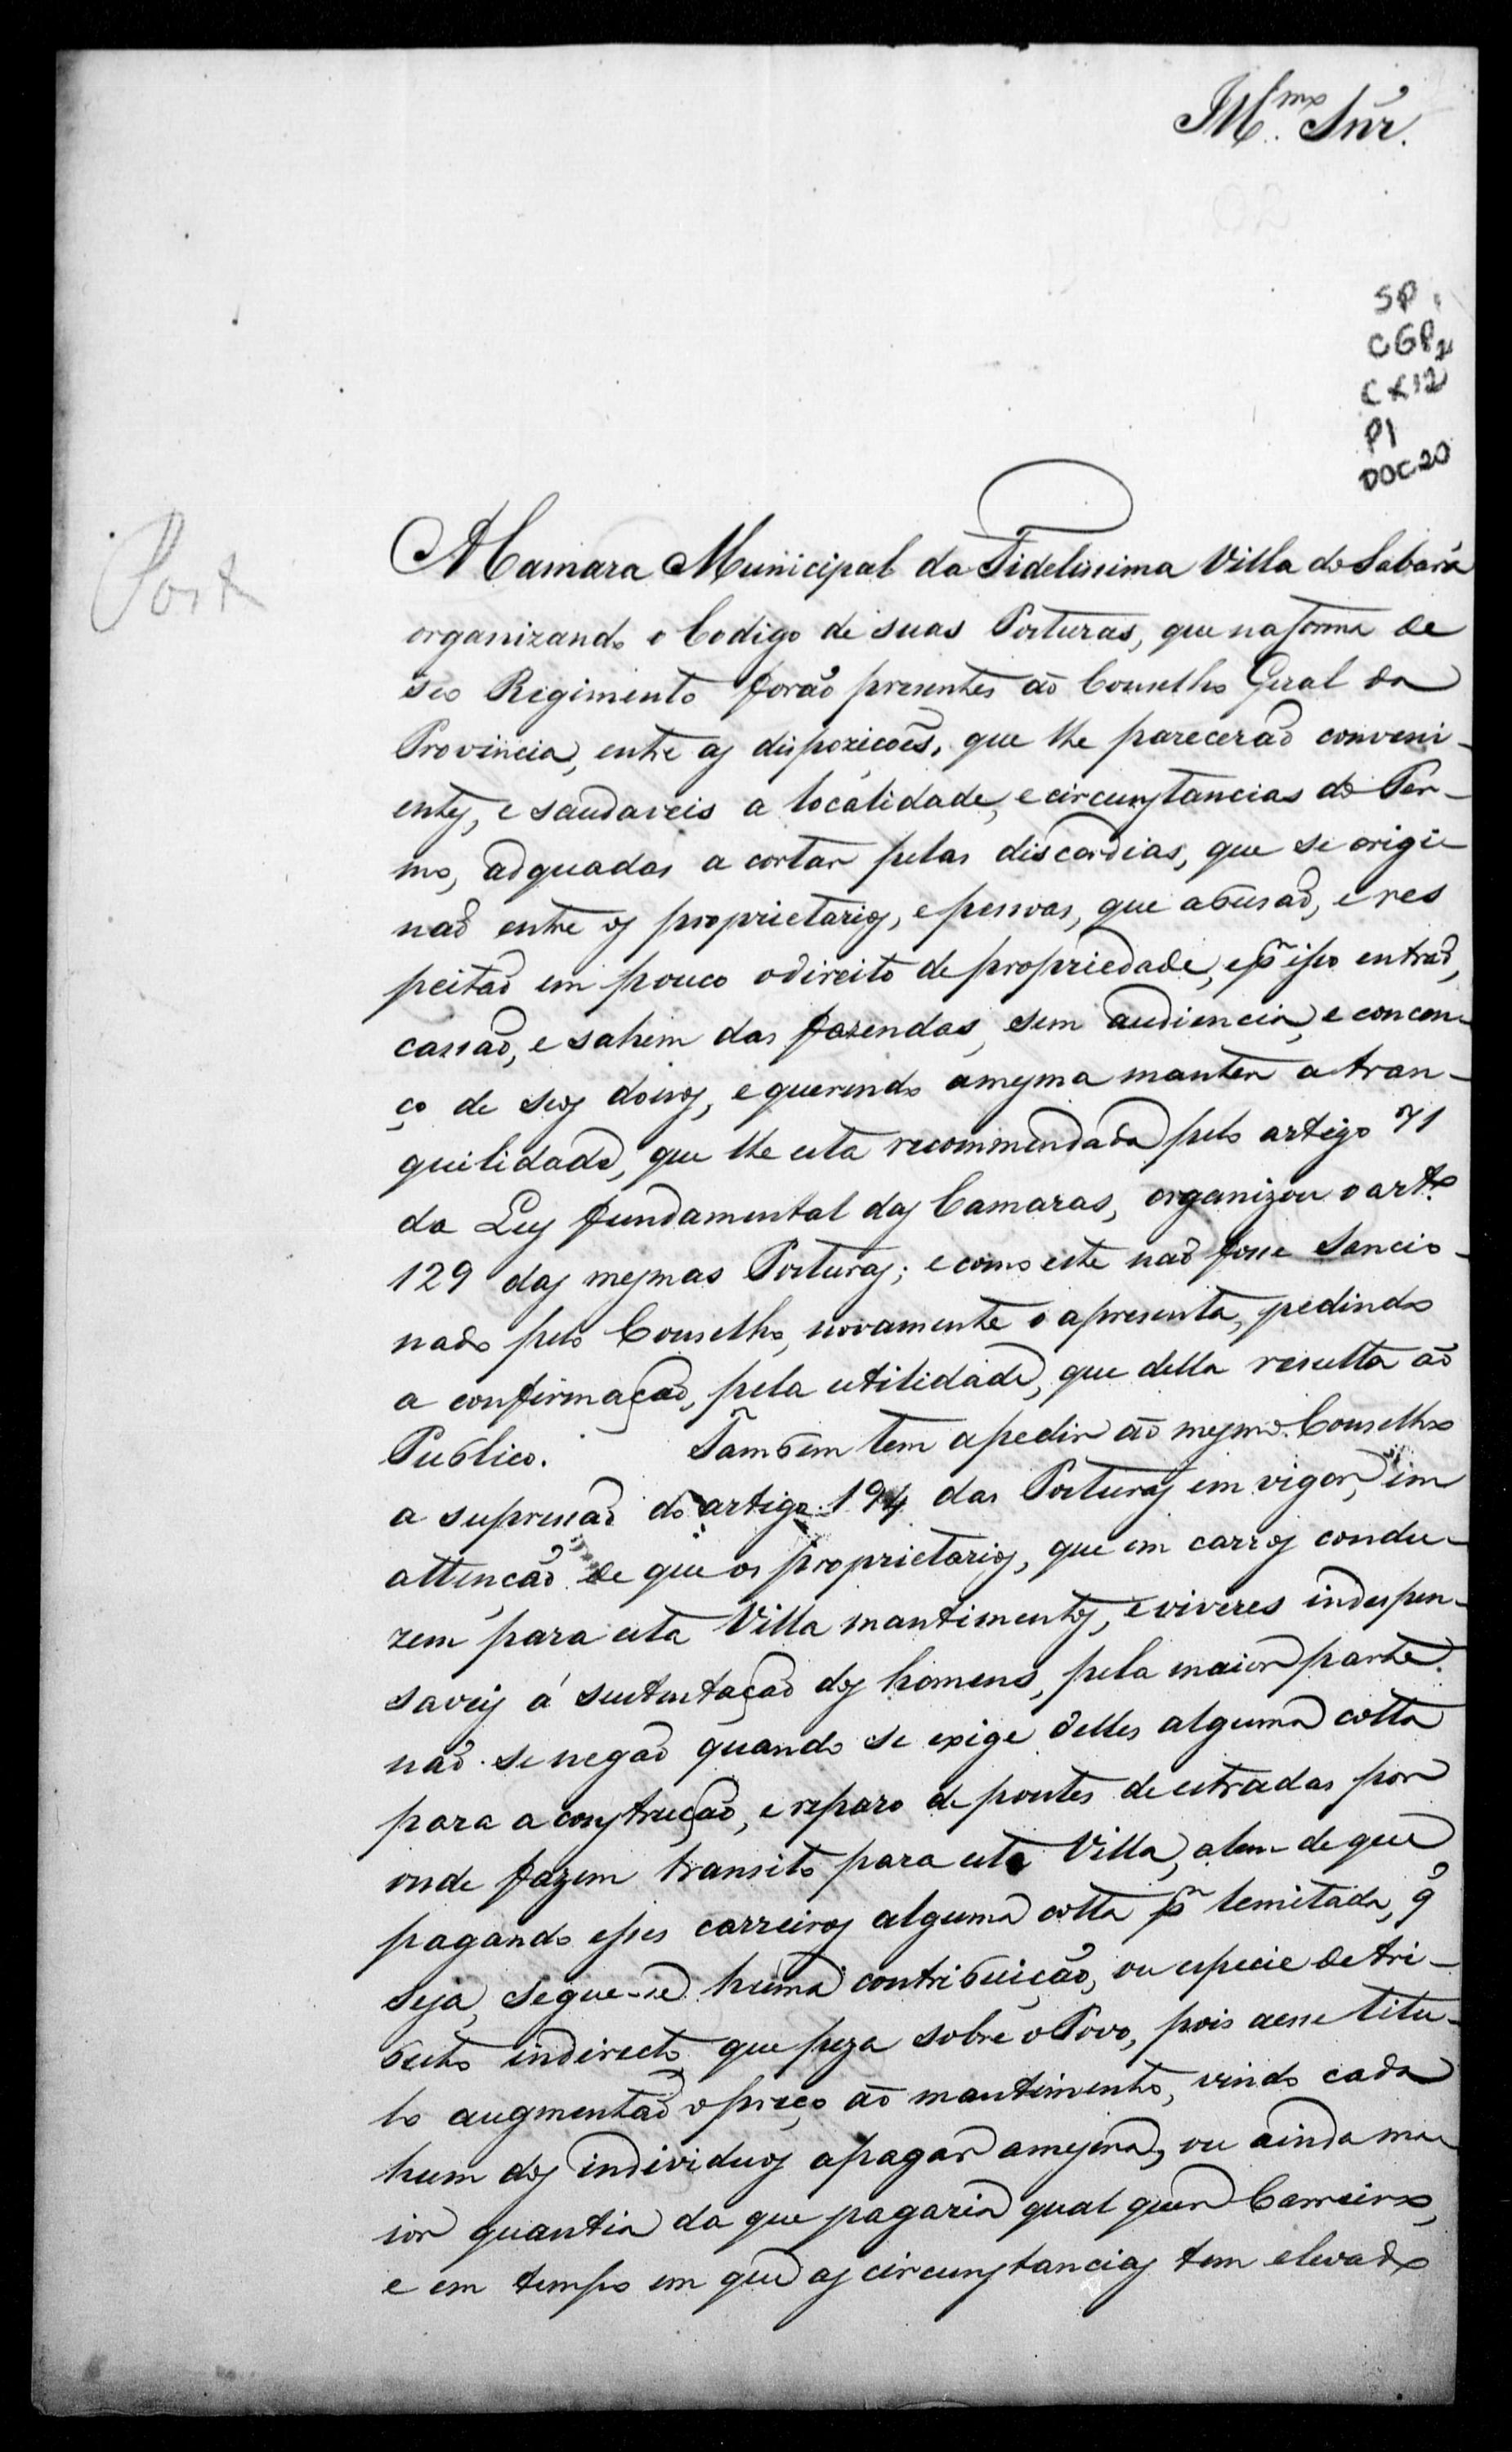 Ill.mo Snr.
SP
CGP2
CX12
P1
DOC20
Post
A Camara Municipal da Fidelissima Villa do Sabará
organizando o Codigo de suas Posturas, que na forma de
seo Regimento forão presentes ao Conselho Geral da
Provincia, entre as dispozicões, que lhe parecerão conveni-
entes, e saudaveis a localidade, e circunstancias do Ter-
mo, adquadas a cortar pelas discordias, que se origi-
não entre os proprietarios, e pessoas, que abusão, e res
peitão em pouco o direito de propriedade, e pr isso entrão,
cassão, e sahem das fazendas, sem audiencia, e concen-
ço de seos donos, e querendo a mesma manter a tran-
quilidade, que lhe esta recommendada pelo artigo 71
da Ley fundamental das Camaras, organizou o art.o
129 das mesmas Posturas; e como este não fosse Sancio-
nado pelo Conselho, novamente o apresenta, pedindo
a confirmação, pela utilidade, que della resulta ao
Publico. Tambem tem a pedir ao mesmo Conselho
a supressão do artigo 194 das Posturas em vigor, em
attencão de que os proprietarios, que em carros condu-
zem para esta Villa mantimentos, e viveres indespen-
saveis á sustentação dos homens, pela maior parte
não se negão quando se exige delles alguma cotta
para a construcção, e reparo de pontes de estradas por
onde fazem transito para esta Villa, alem de que
pagando esses carreiros alguma cotta pr lemitada, q
seja, segue-se huma contribuicão, ou especie de tri-
buto indirecto que peza sobre o Povo, pois a esse titu-
lo augmentão o preço ao mantimento, vindo cada
hum dos individuos a pagar a mesma, ou ainda ma
ior quantia da que pagaria qual quer Carreiro,
e em tempo em que as circunstancias tem elevado